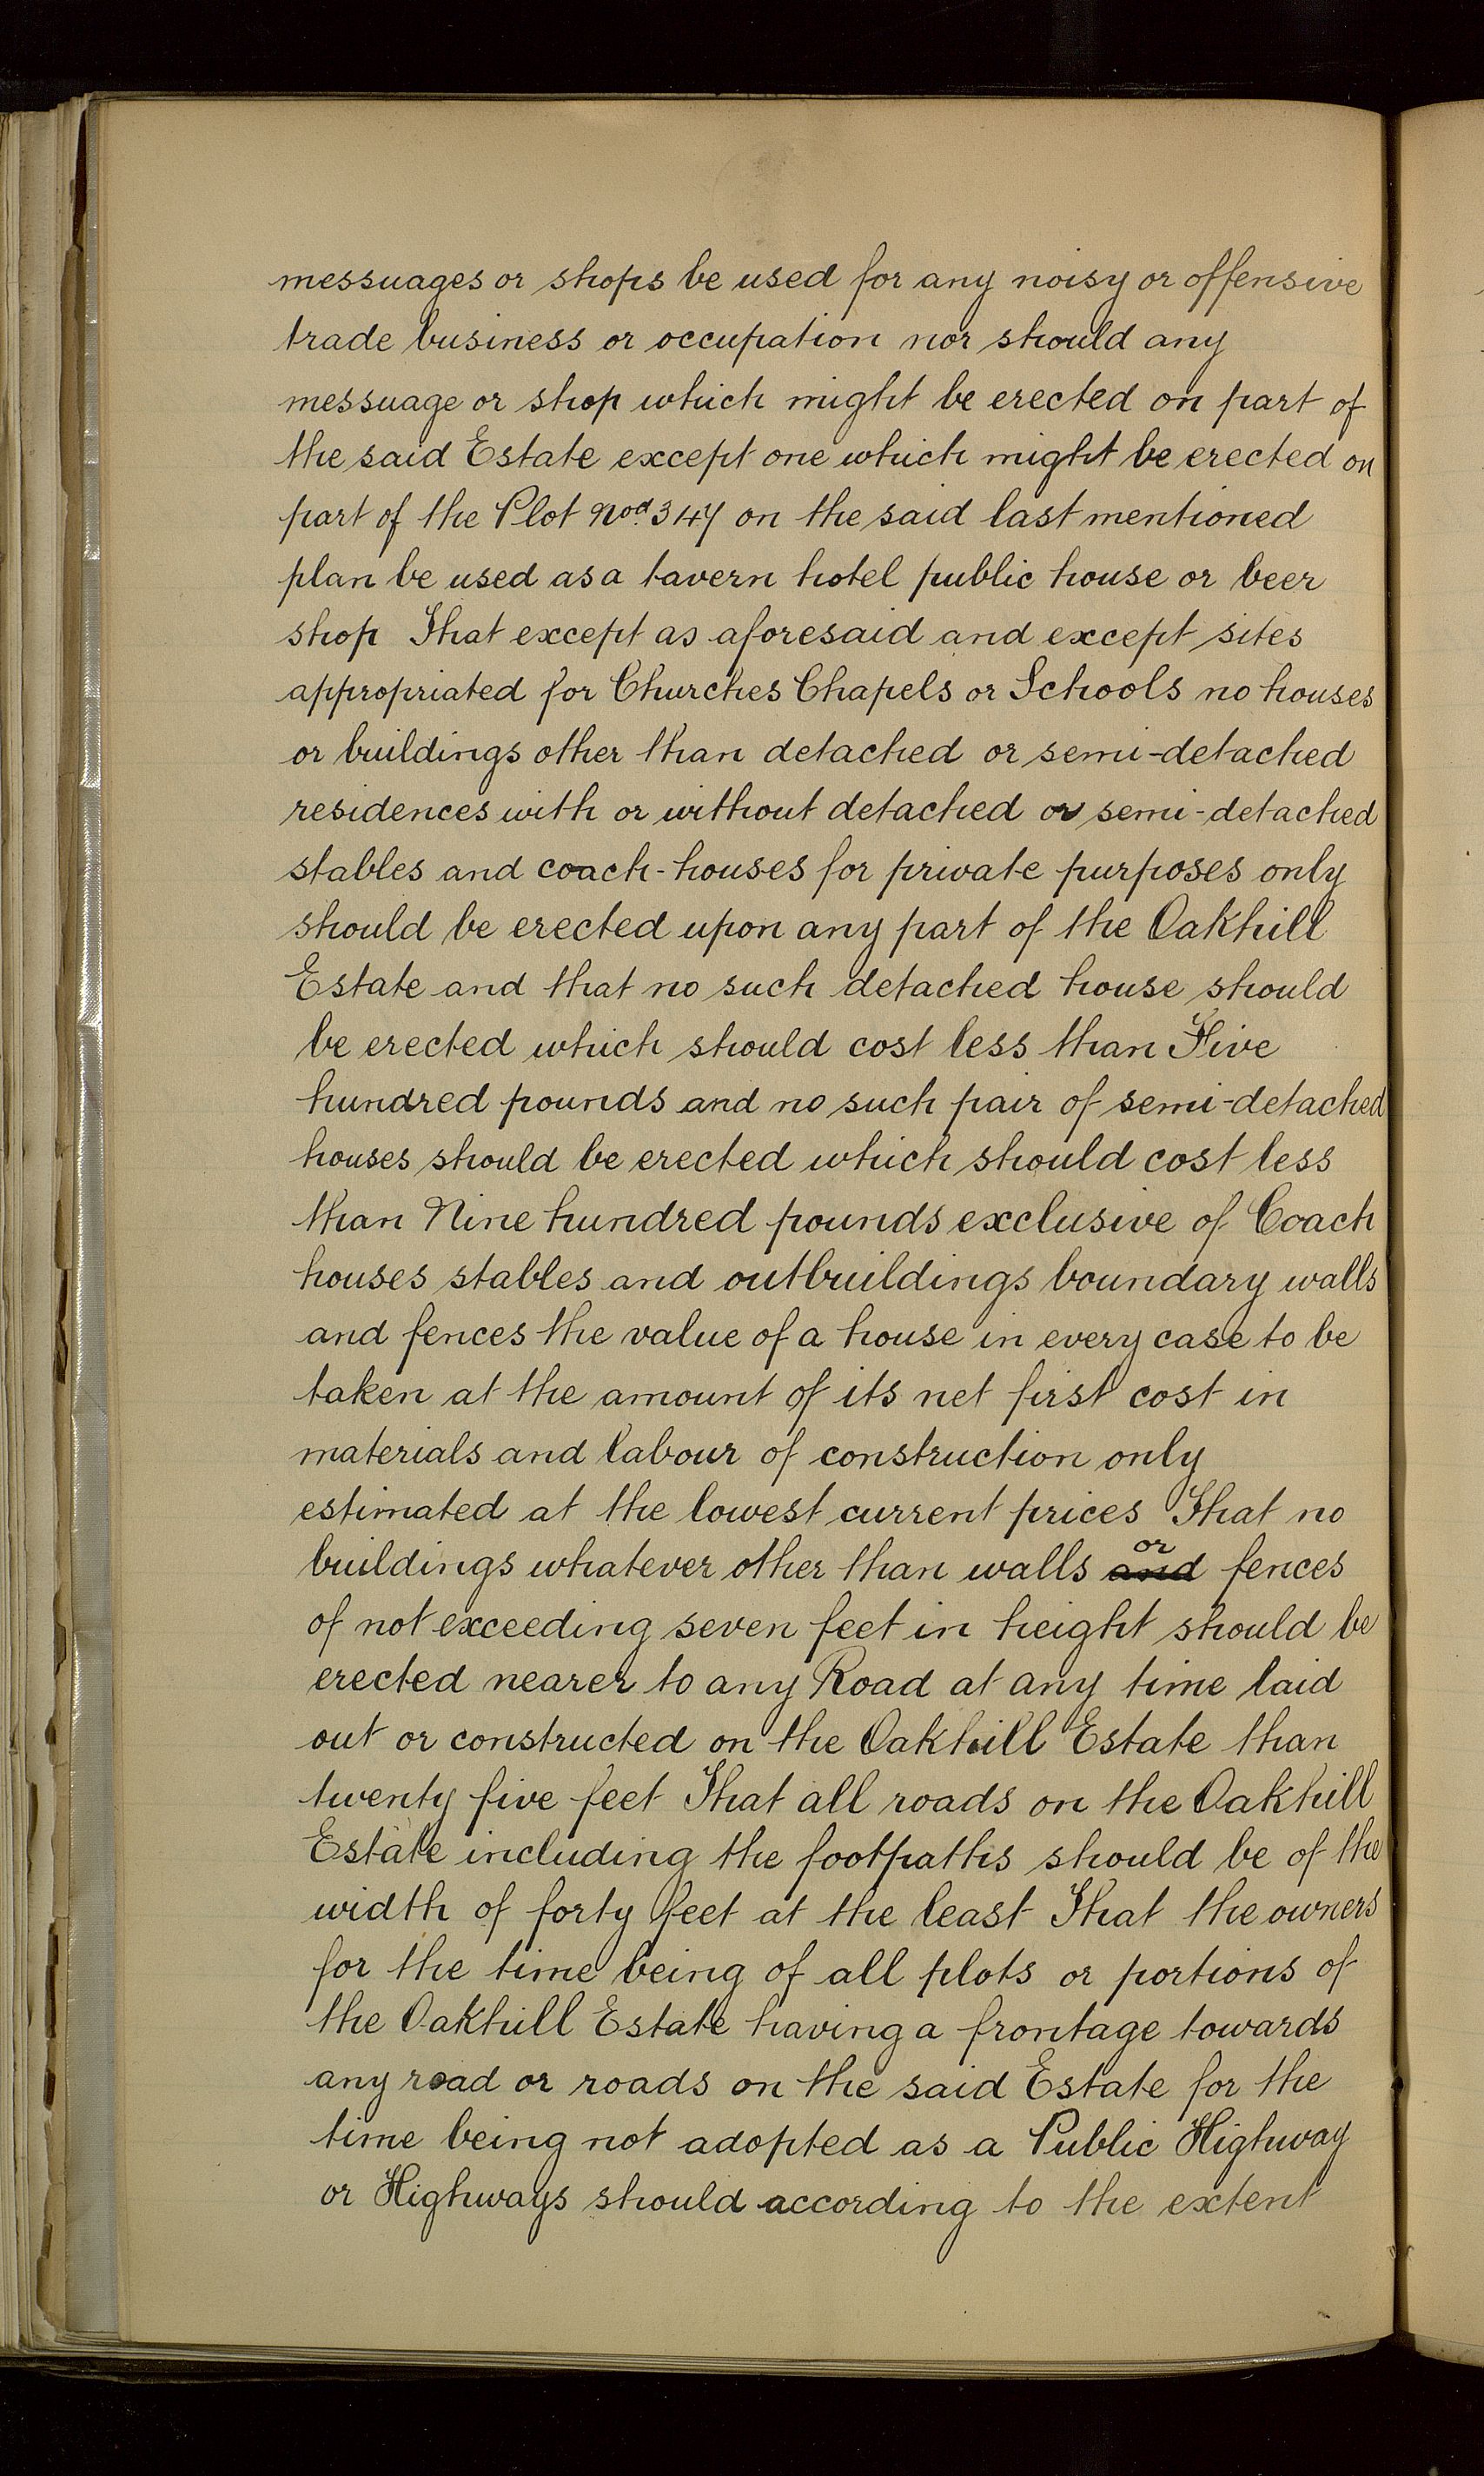 messuages or shops be used for any noisy or offensive
trade business or occupation nor should any
messuage or shop which might be erected on part of
the said Estate except one which might be erected on
part of the Plot Nod. 347 on the said last mentioned
plan be used as a tavern hotel public house or beer
shop That except as aforesaid and except sites
appropriated for Churches Chapels or Schools no houses
or buildings other than detached or semi-detached
residences with or without detached or semi-detached
stables and coach-houses for private purposes only
should be erected upon any part of the Oakhill
Estate and that no such detached house should
be erected which should cost less than Five
hundred pounds and no such pair of semi-detached
houses should be erected which should cost less
than Nine hundred pounds exclusive of Coach
houses stables and outbuildings boundary walls
and fences the value of a house in every case to be
taken at the amount of its net first cost in
materials and labour of construction only
estimated at the lowest current prices That no
buildings whatever other than walls and or fences
of not exceeding seven feet in height should be
erected nearer to any Road at any time laid
out or constructed on the Oakhill Estate than
twenty five feet That all roads on the Oakhill
Estate including the footpaths should be of the
width of forty feet at the least That the owners
for the time being of all plots or portions of
the Oakhill Estate having a frontage towards
any road or roads on the said Estate for the
time being not adopted as a Public Highway
or Highways should according to the extent